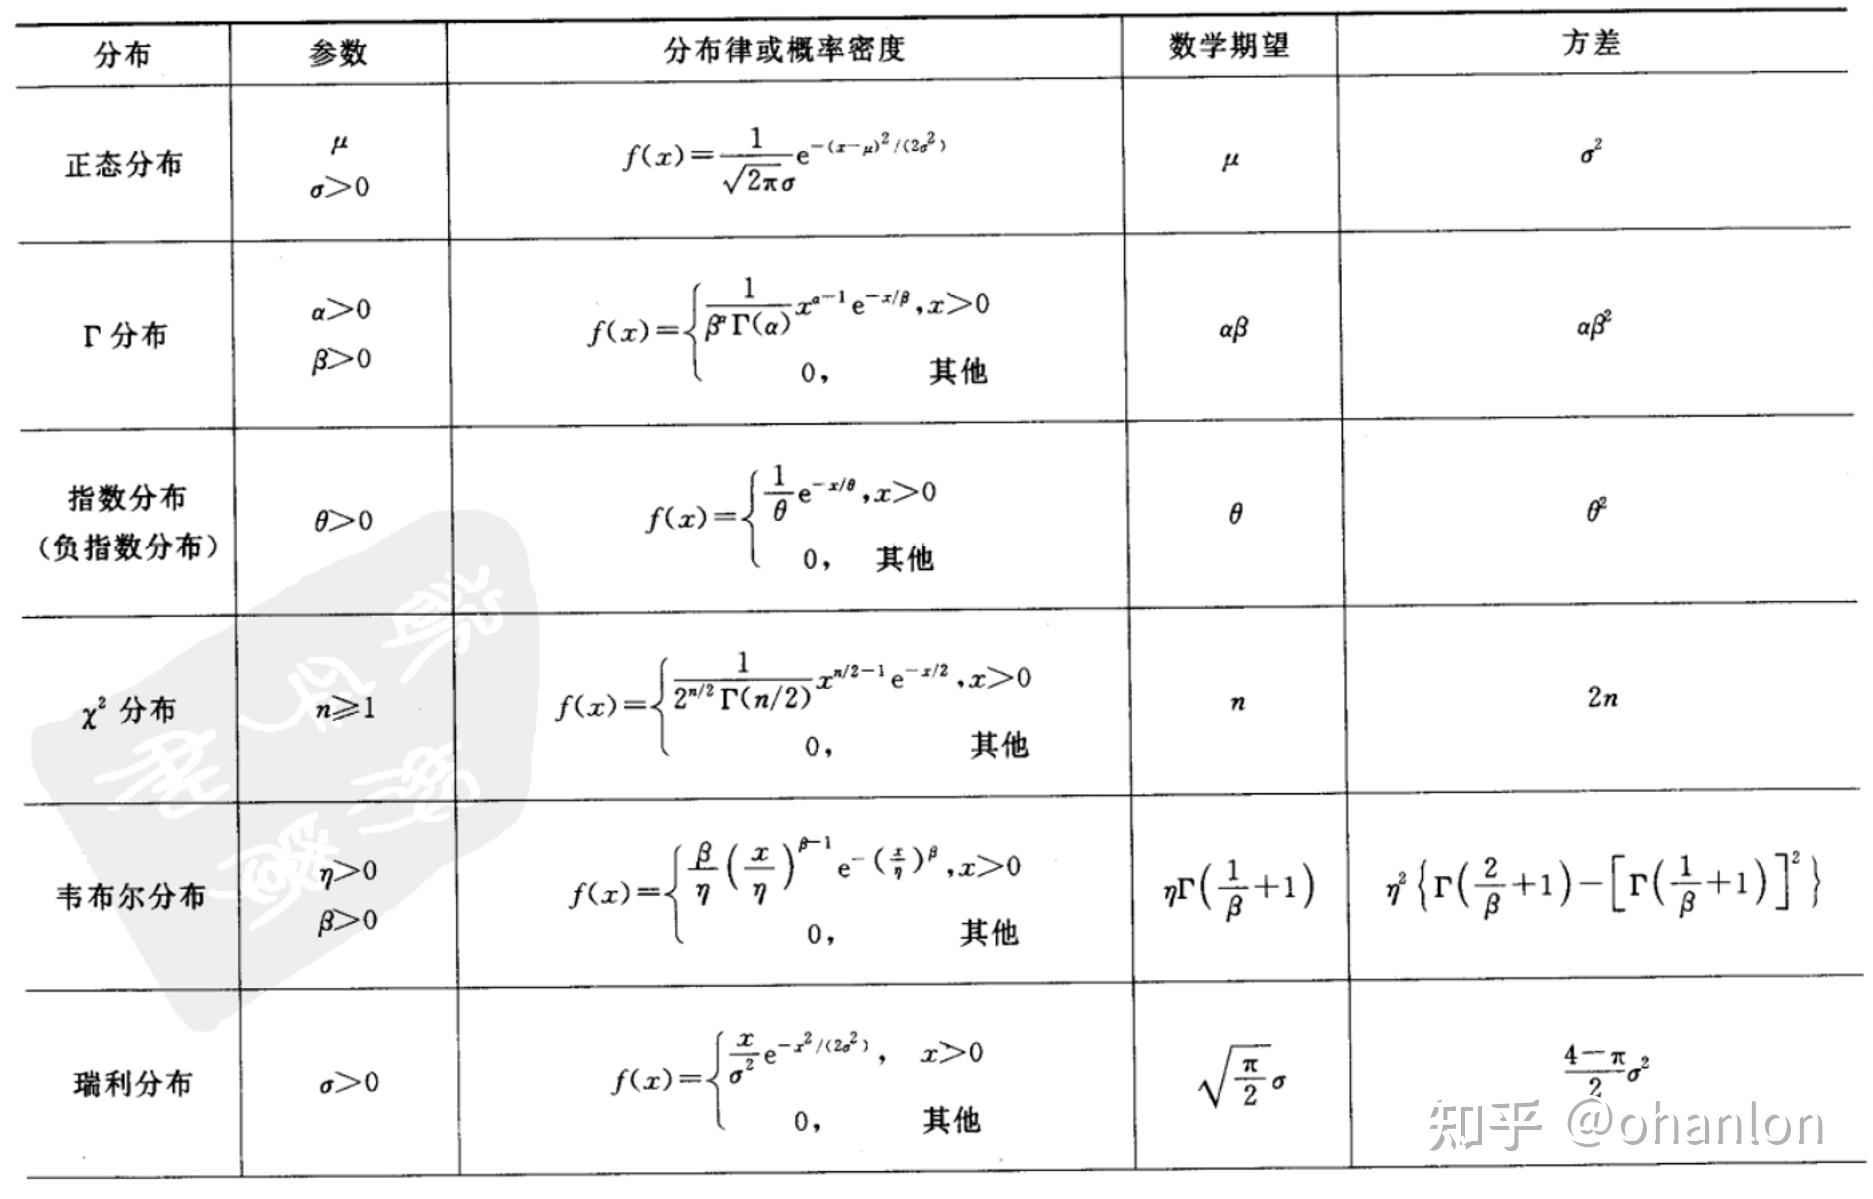 分布 参数 分布律或概率密度 数学期望 方差
正态分布 μ σ>0 f(x)=\frac{1}{\sqrt{2π}σ}e^{-(x-μ)^2/(2σ^2)} μ σ^2
Γ分布 α>0 β>0 f(x)=\begin{cases}\frac{1}{β^αΓ(α)}x^{α-1}e^{-x/β}, x>0 \\ 0, 其他\end{cases} αβ αβ^2
指数分布 (负指数分布) θ>0 f(x)=\begin{cases}\frac{1}{θ}e^{-x/θ}, x>0 \\ 0, 其他\end{cases} θ θ^2
χ^2 分布 n⩾1 f(x)=\begin{cases}\frac{1}{2^{n/2}Γ(n/2)}x^{n/2-1}e^{-x/2}, x>0 \\ 0, 其他\end{cases} n 2n
韦布尔分布 η>0 β>0 f(x)=\begin{cases}\frac{β}{η}(\frac{x}{η})^{β-1}e^{-(\frac{x}{η})^β}, x>0 \\ 0, 其他\end{cases} ηΓ(\frac{1}{β}+1) η^2\{Γ(\frac{2}{β}+1)-[Γ(\frac{1}{β}+1)]^2\}
瑞利分布 σ>0 f(x)=\begin{cases}\frac{x}{σ^2}e^{-x^2/(2σ^2)}, x>0 \\ 0, 其他\end{cases} \sqrt{\frac{π}{2}}σ \frac{4-π}{2}σ^2
知乎 @ohanlon